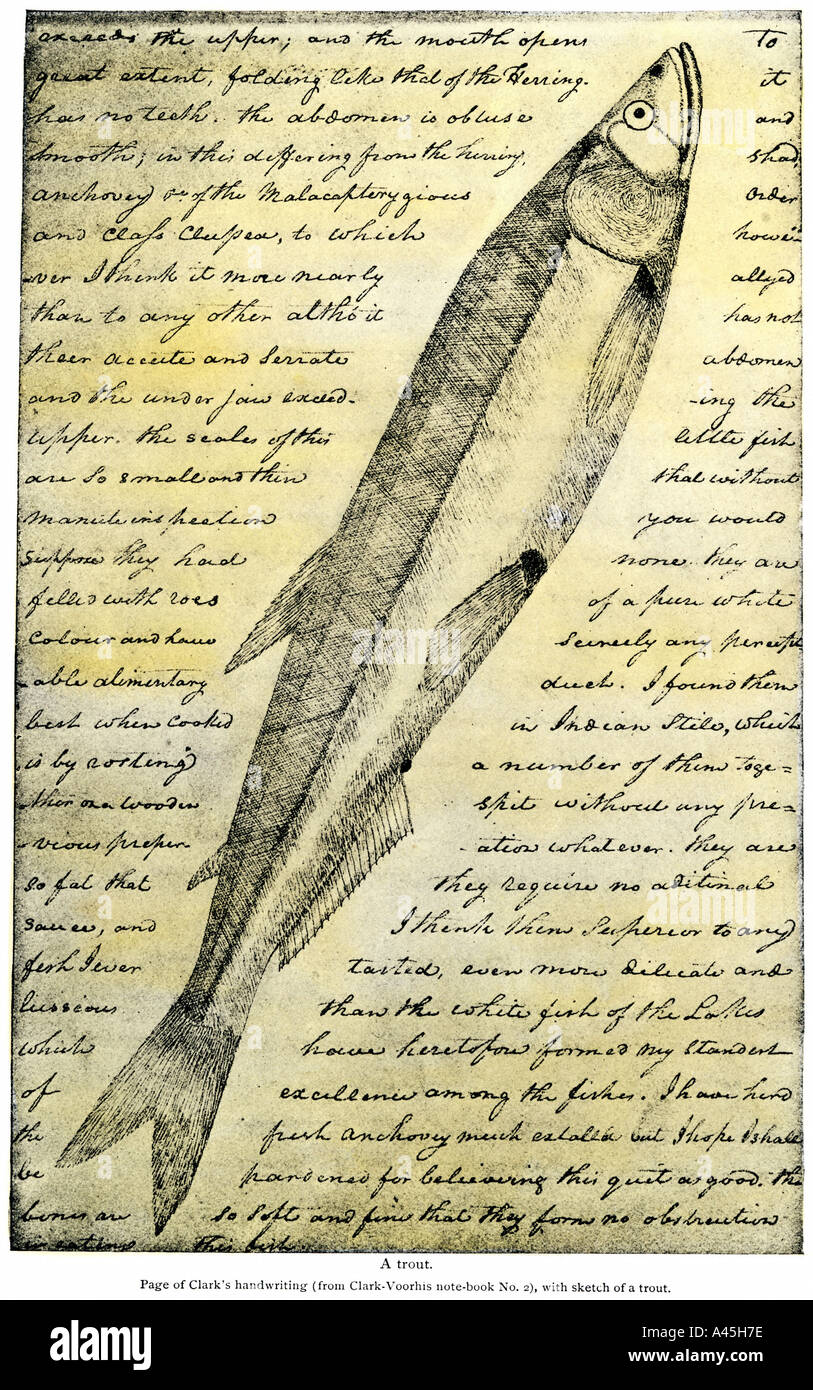 exceeds the upper; and the mouth opens To
great extent, folding like that of the Herring. it
has no teeth. the abdomen is obtuse and
smooth; in this differing from the herring, shad,
anchovey &c. of the Malacapterygious Order
and Class Clupea, to which howe-
ver I think it more nearly allyed
than to any other altho' it has not
their accute and serrate abdomen
and the under jaw exceed- -ing the
upper. the scales of this little fish
are so small and thin that without
manute inspection you would
suppose they had none. they are
filled with roes of a pure white
colour and have scercely any percept
-able alimentary duct. I found them
best when cooked in Indian Stile, which
is by rosting a number of them toge=
-ther on a wooden spit without any pre=
-vious preper- -ation whatever. they are
so fat that they require no aditinal
sauce, and I think them Superior to any
fish I ever tasted, even more dilicate and
lusscious than the white fish of the Lakes
which have heretofore formed my standert
of excellence among the fishes. I have herd
the fresh anchovey much extolled but I hope I shall
be pardened for believeing this quit as good. the
bones are so soft and fine that they form no obstruction
in eating this fish.
A trout.
Page of Clark's handwriting (from Clark-Voorhis note-book No. 2), with sketch of a trout.
alamy
Image ID: A45H7E
www.alamy.com